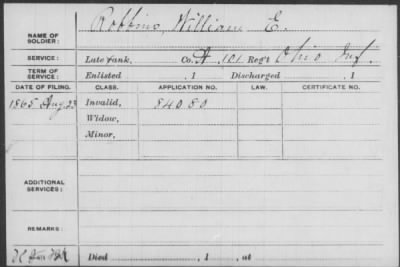 NAME OF SOLDIER: Robbins, William E.
SERVICE: Late rank, Co. A 101 Reg't Ohio Inf.
TERM OF SERVICE: Enlisted , 1 Discharged , 1
DATE OF FILING. CLASS. APPLICATION NO. LAW. CERTIFICATE NO.
1865 Aug. 23 Invalid, 84080
Widow,
Minor,
ADDITIONAL SERVICES:
REMARKS:
Died , 1 , at